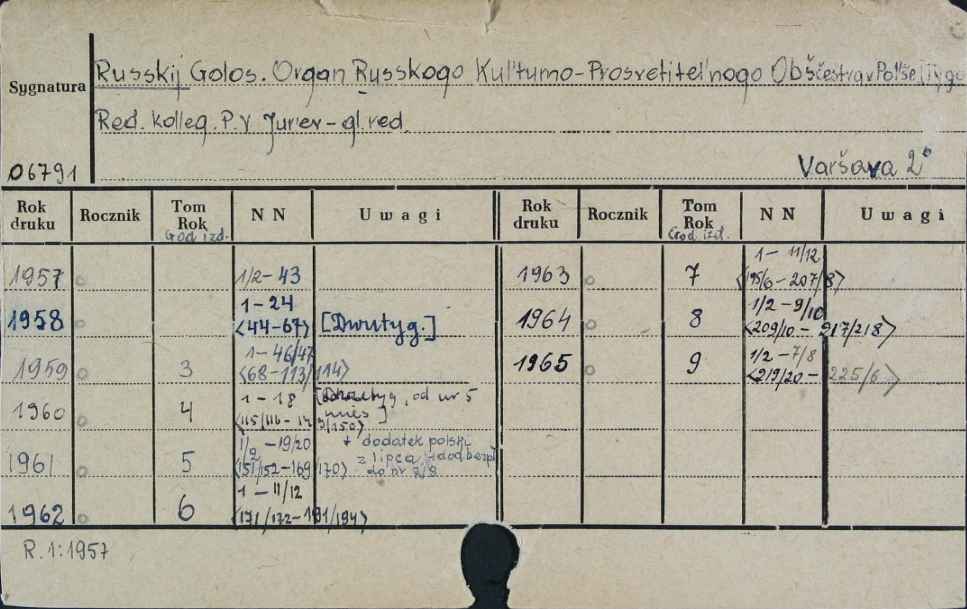 Russkij Golos. Organ Russkogo Kul'turno-Prosvetitel'nogo Obščestva v Pol'še
Sygnatura
Red. kolleg. P.V Jur'ev - gl. red.
06791
Varšava 2°
Rok druku Rocznik Tom Rok God izd. N N Uwagi Rok druku Rocznik Tom Rok God izd. N N Uwagi
1957 1/2-43 1963 7 1-11/12 <195/6-207/8>
1958 1-24 <44-67> [Dwutyg.] 1964 8 1/2-9/10 <209/10-217/218>
1959 3 1-46/47 <68-113/114> 1965 9 1/2-7/8 <219/20-225/6>
1960 4 1-18 <115/116- /150> , od nr 5 mies]
1961 5 1/2-19/20 <151/152-169/170> + dodatek polski z lipca do nr 7/8
1962 6 1-11/12 <171/172-191/194>
R.1:1957